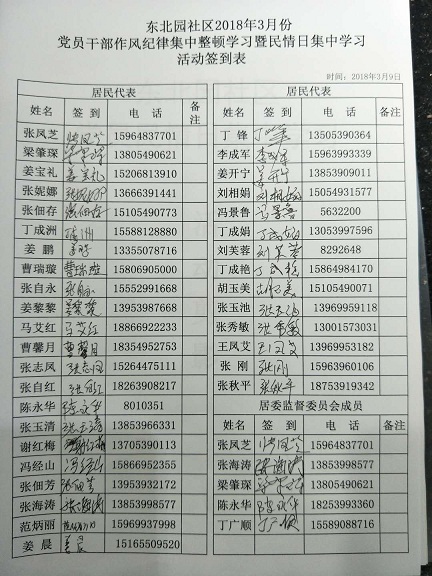 东北园社区2018年3月份
党员干部作风纪律集中整顿学习暨民情日集中学习
活动签到表
时间：2018年3月9日
居民代表 居民代表
姓名 签到 电话 备注 姓名 签到 电话 备注
张凤芝 张凤芝 15964837701 丁锋 丁锋 13505390364
梁肇琛 梁肇琛 13805490621 李成军 李成军 15963993339
姜宝礼 姜宝礼 15206813910 姜开宁 姜开宁 13853909011
张妮娜 张妮娜 13666391441 刘相娟 刘相娟 15054931577
张佃存 张佃存 15105490773 冯景鲁 冯景鲁 5632200
丁成洲 丁成洲 15588128880 丁成娟 丁成娟 13053997596
姜鹏 姜鹏 13355078716 刘芙蓉 刘芙蓉 8292648
曹瑞璇 曹瑞璇 15806905000 丁成艳 丁成艳 15864984170
张自永 张自永 15552991668 胡玉美 胡玉美 15105490071
姜黎黎 姜黎黎 13953987668 张玉池 张玉池 13969959118
马艾红 马艾红 18866922233 张秀敏 张秀敏 13001573031
曹馨月 曹馨月 18354952753 王凤艾 王凤艾 13969953182
张志凤 张志凤 15264475111 张刚 张刚 15963960106
张自红 张自红 18263908217 张秋平 张秋平 18753919342
陈永华 陈永华 8010351 居委监督委员会成员
张玉清 张玉清 13853966331 姓名 签到 电话 备注
谢红梅 谢红梅 13705390113 张凤芝 张凤芝 15964837701
冯经山 冯经山 15866952355 张海涛 张海涛 13853998577
张佃芳 张佃芳 13953932512 梁肇琛 梁肇琛 13805490621
张海涛 张海涛 13853998577 陈永华 陈永华 18253993360
范炳丽 范炳丽 15969937998 丁广顺 丁广顺 15589088716
姜晨 姜晨 15165509520